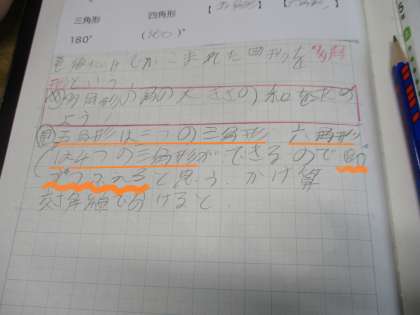 三角形 四角形
180° (360)°
直線だけでかこまれた図形を多角
形という。
め 多角形の角の大きさの和を求め
よう。
三角形は二つの三角形 六角形
は4つの三角形ができるので
ずつふえると思う。かけ算
対角線で分けると、